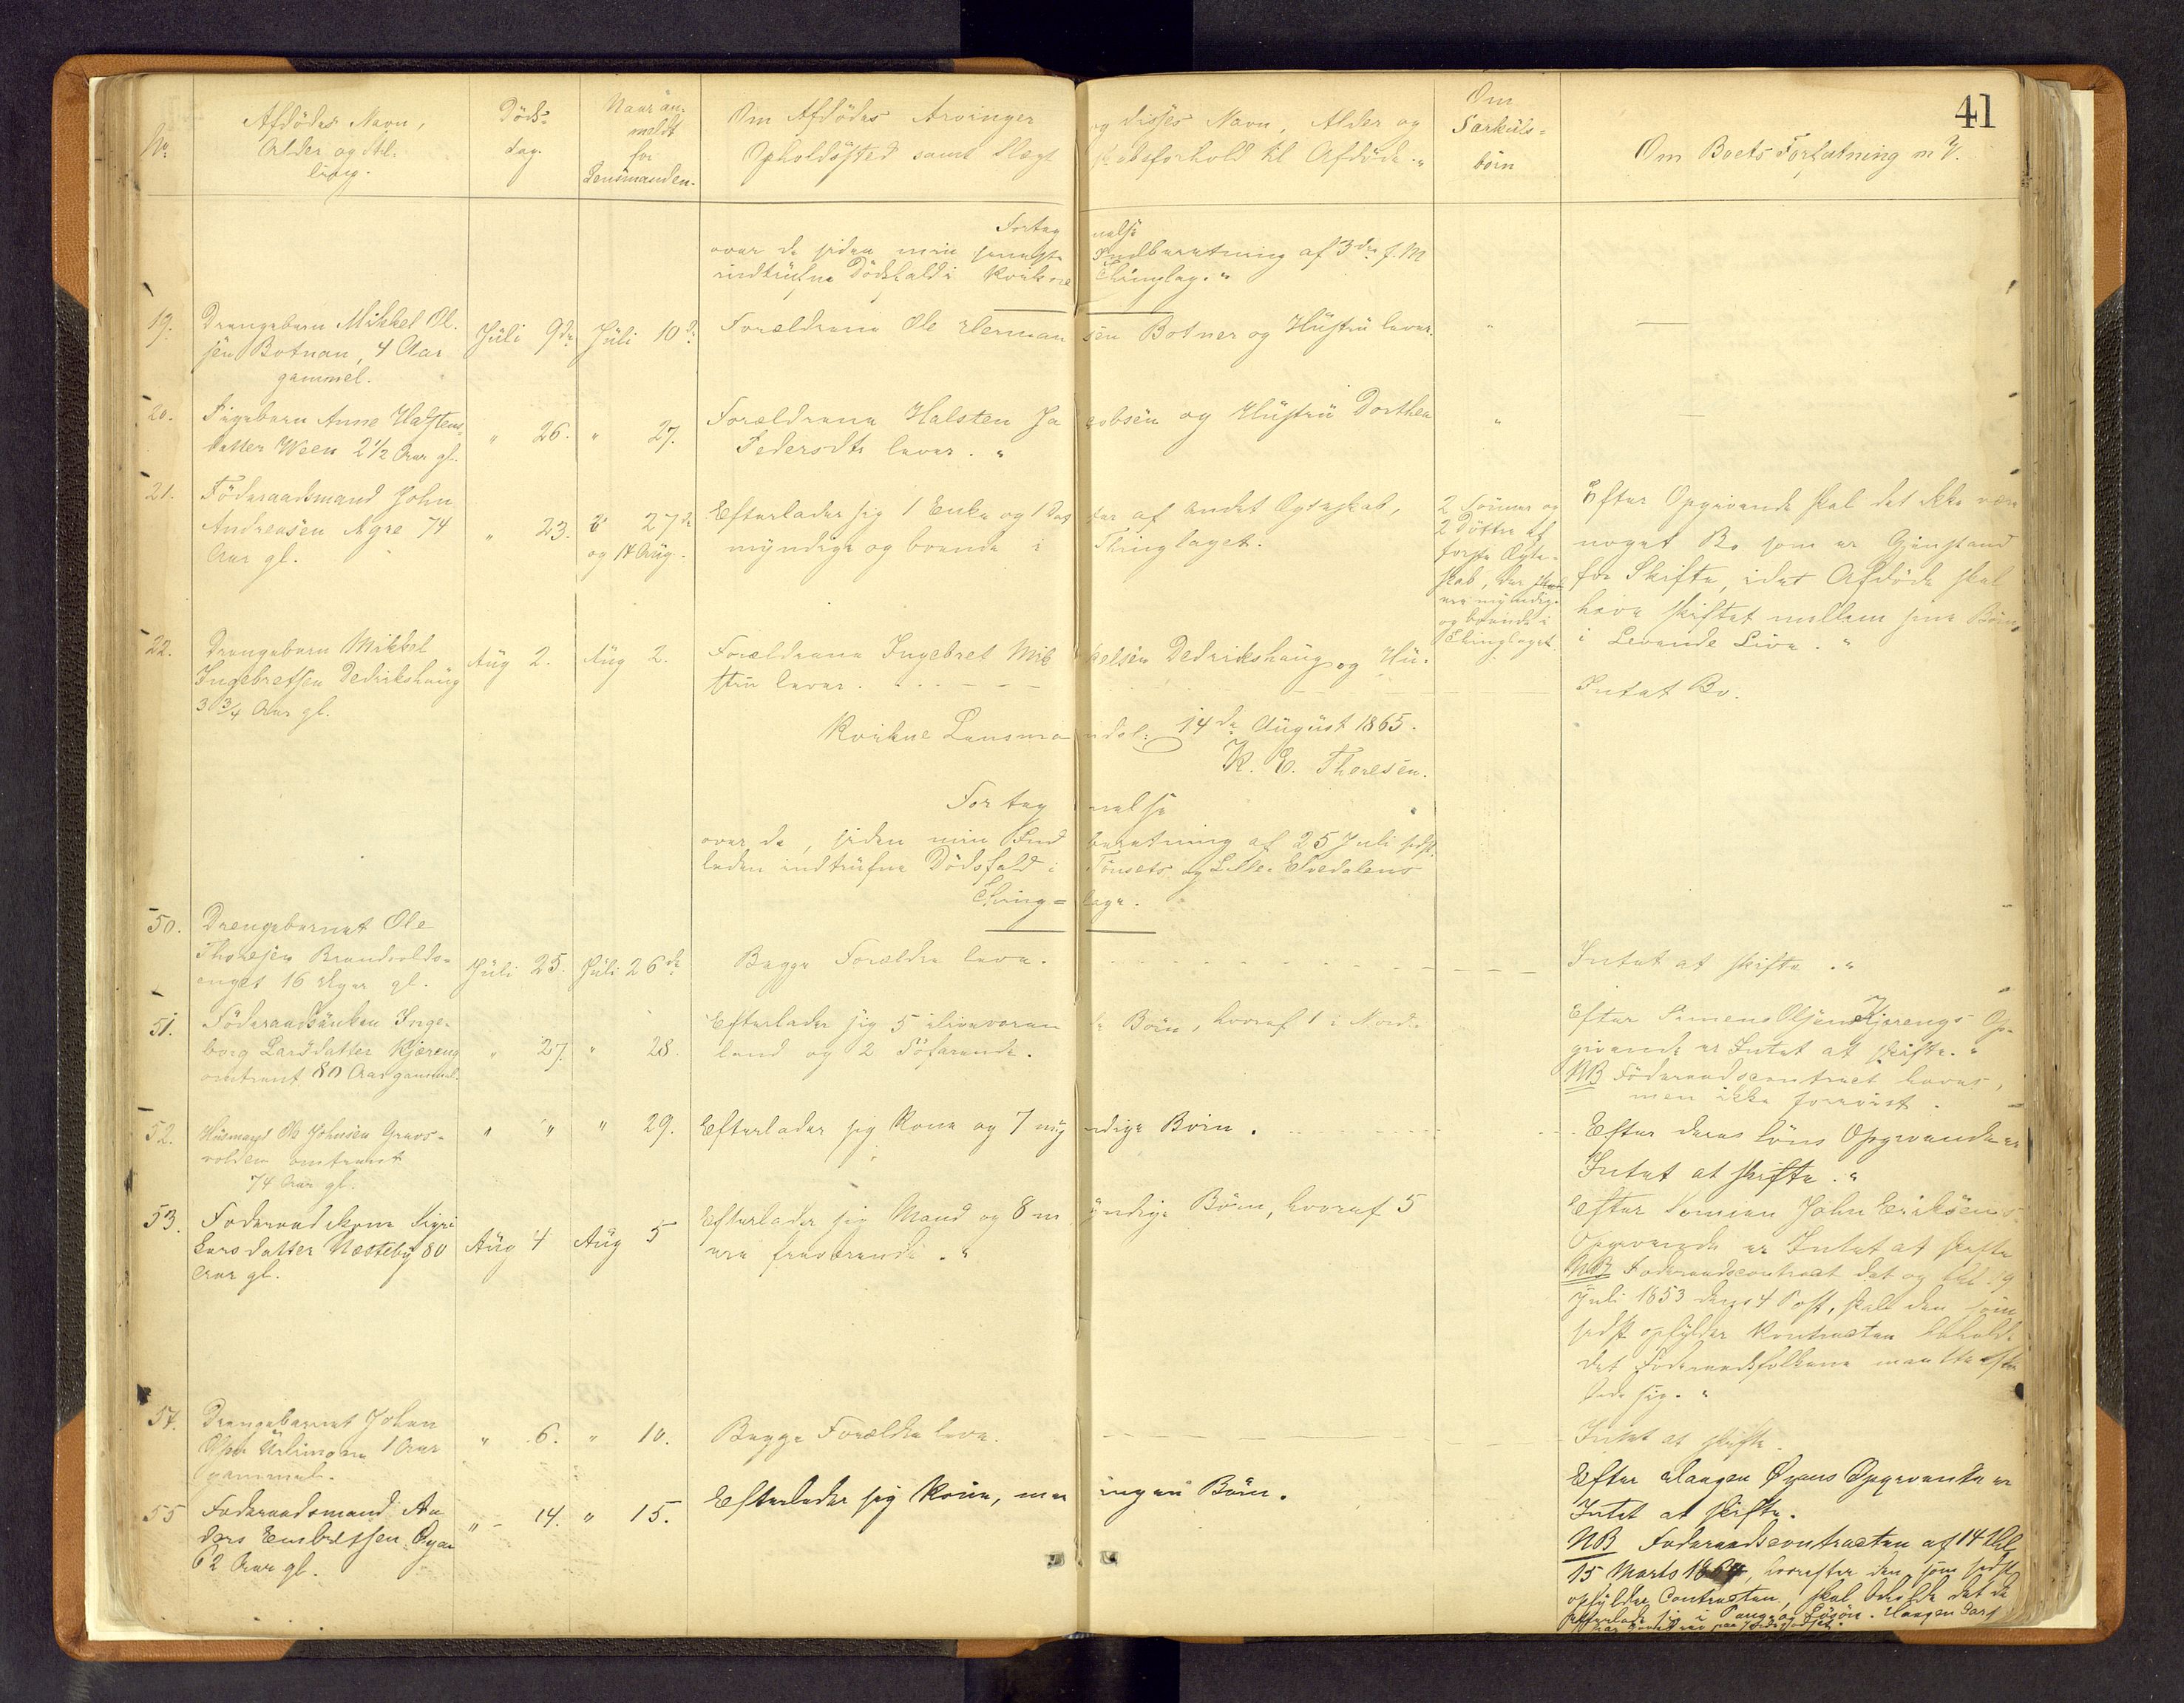 41
No
Afdödes Navn,
Alder og Stil-
ling.
Döds-
dag.
Naar an-
meldt
for
Lensmanden.
Om Afdödes Arvinger og disses Navn, Alder og
Opholdssted samt Slægtskabsforhold til Afdöde.
Om
Særkuls-
börn
Om Boets Forfatning m. V.
Fortegnelse
over de siden min seneste Indberetning af 3die f. M
indtrufne Dödsfald i Kvikne Thinglag.
19.
Drengebarn Mikkel Ol-
sen Botnan, 4 Aar
gammel.
Juli 9de
Juli 10de
Forældrene Ole Hermansen Botner og Hustru lever.
20.
Pigebarn Anne Halstens-
datter Ween 2 1/2 Aar gl.
" 26.
" 27.
Forældrene Halsten Jacobsen og Hustru Dorthea
Pedersdtr lever.
21.
Föderaadsmand John
Andreasen Agre 74
Aar gl.
" 23.
27de
og 14 Aug.
Efterlader sig 1 Enke og 1 Datter af andet Ægteskab,
myndige og boende i Thinglaget.
2 Sönner og
2 Döttre af
forste Ægte-
skab, der
ere myndige
og boende i
Thinglaget
Efter Opgivende skal det ikke være
noget Bo som er Gjenstand
for Skifte, idet Afdöde skal
have skiftet mellem sine Börn
i Levende Live.
22.
Drengebarn Mikkel
Ingebretsen Dedrikshaug
3 3/4 Aar gl.
Aug 2.
Aug 2.
Forældrene Ingebret Mikkelsen Dedrikshaug og Hu-
stru lever.
Intet Bo.
Kvikne Lensmandsl: 14de August 1865.
K. E. Thoresen.
Fortegnelse
over de, siden min Indberetning af 25 Juli sidst-
leden indtrufne Dödsfald i Tönsets og Lille-Elvedalens
Thing=lage.
50.
Drengebarnet Ole
Thoresen Brandvolds-
enget 16 Uger gl.
Juli 25.
Juli 26de
Begge Forældre leve.
Intet at skifte.
51.
Föderaadsenken Inge-
borg Larsdatter Kjæreng
omtrent 80 Aar gammel.
" 27.
" 28.
Efterlader sig 5 ilivevorende Börn, hvoraf 1 i Nord-
land og 2 Söfarende.
Efter Simen Olsen Kjerengs Op-
givende er Intet at skifte.
NB Föderaadscontract haves,
men ikke forevist.
52.
Husmand Ole Johnsen Gravs-
volden omtrent
74 Aar gl.
" "
" 29.
Efterlader sig Kone og 7 myndige Börn.
Efter deres Söns Opgivende er
Intet at skifte.
53.
Foderaadskone Sigri
Larsdatter Næsteby 80
Aar gl.
Aug 4
Aug 5
Efterlader sig Mand og 8 myndige Börn, hvoraf 5
ere fraværende.
Efter Sönnen John Eriksens
Opgivende er Intet at skifte
NB Foderaadscontract dat og thl 19
Juli 1853 dens 4 Post, skal den som
sidst opfylder Kontracten beholde
det Föderaadsfolkene maatte efter-
lade sig.
54.
Drengebarnet Johan
1 Aar
gammel.
" 6.
" 10.
Begge Forældre leve.
Intet at skifte.
55
Foderaadsmand An-
ders Embretsen Öyan
62 Aar gl.
" 14.
" 15.
Efterlader sig Kone, men ingen Börn.
Efter Haagen Öyens Opgivende er
Intet at skifte.
NB Foderaadscontracten af 14 thl
15 Marts, hvorefter den som sidst
opfylder Contracten, skal beholde det de
efterlade sig i Penge og Lösöre. Haagen